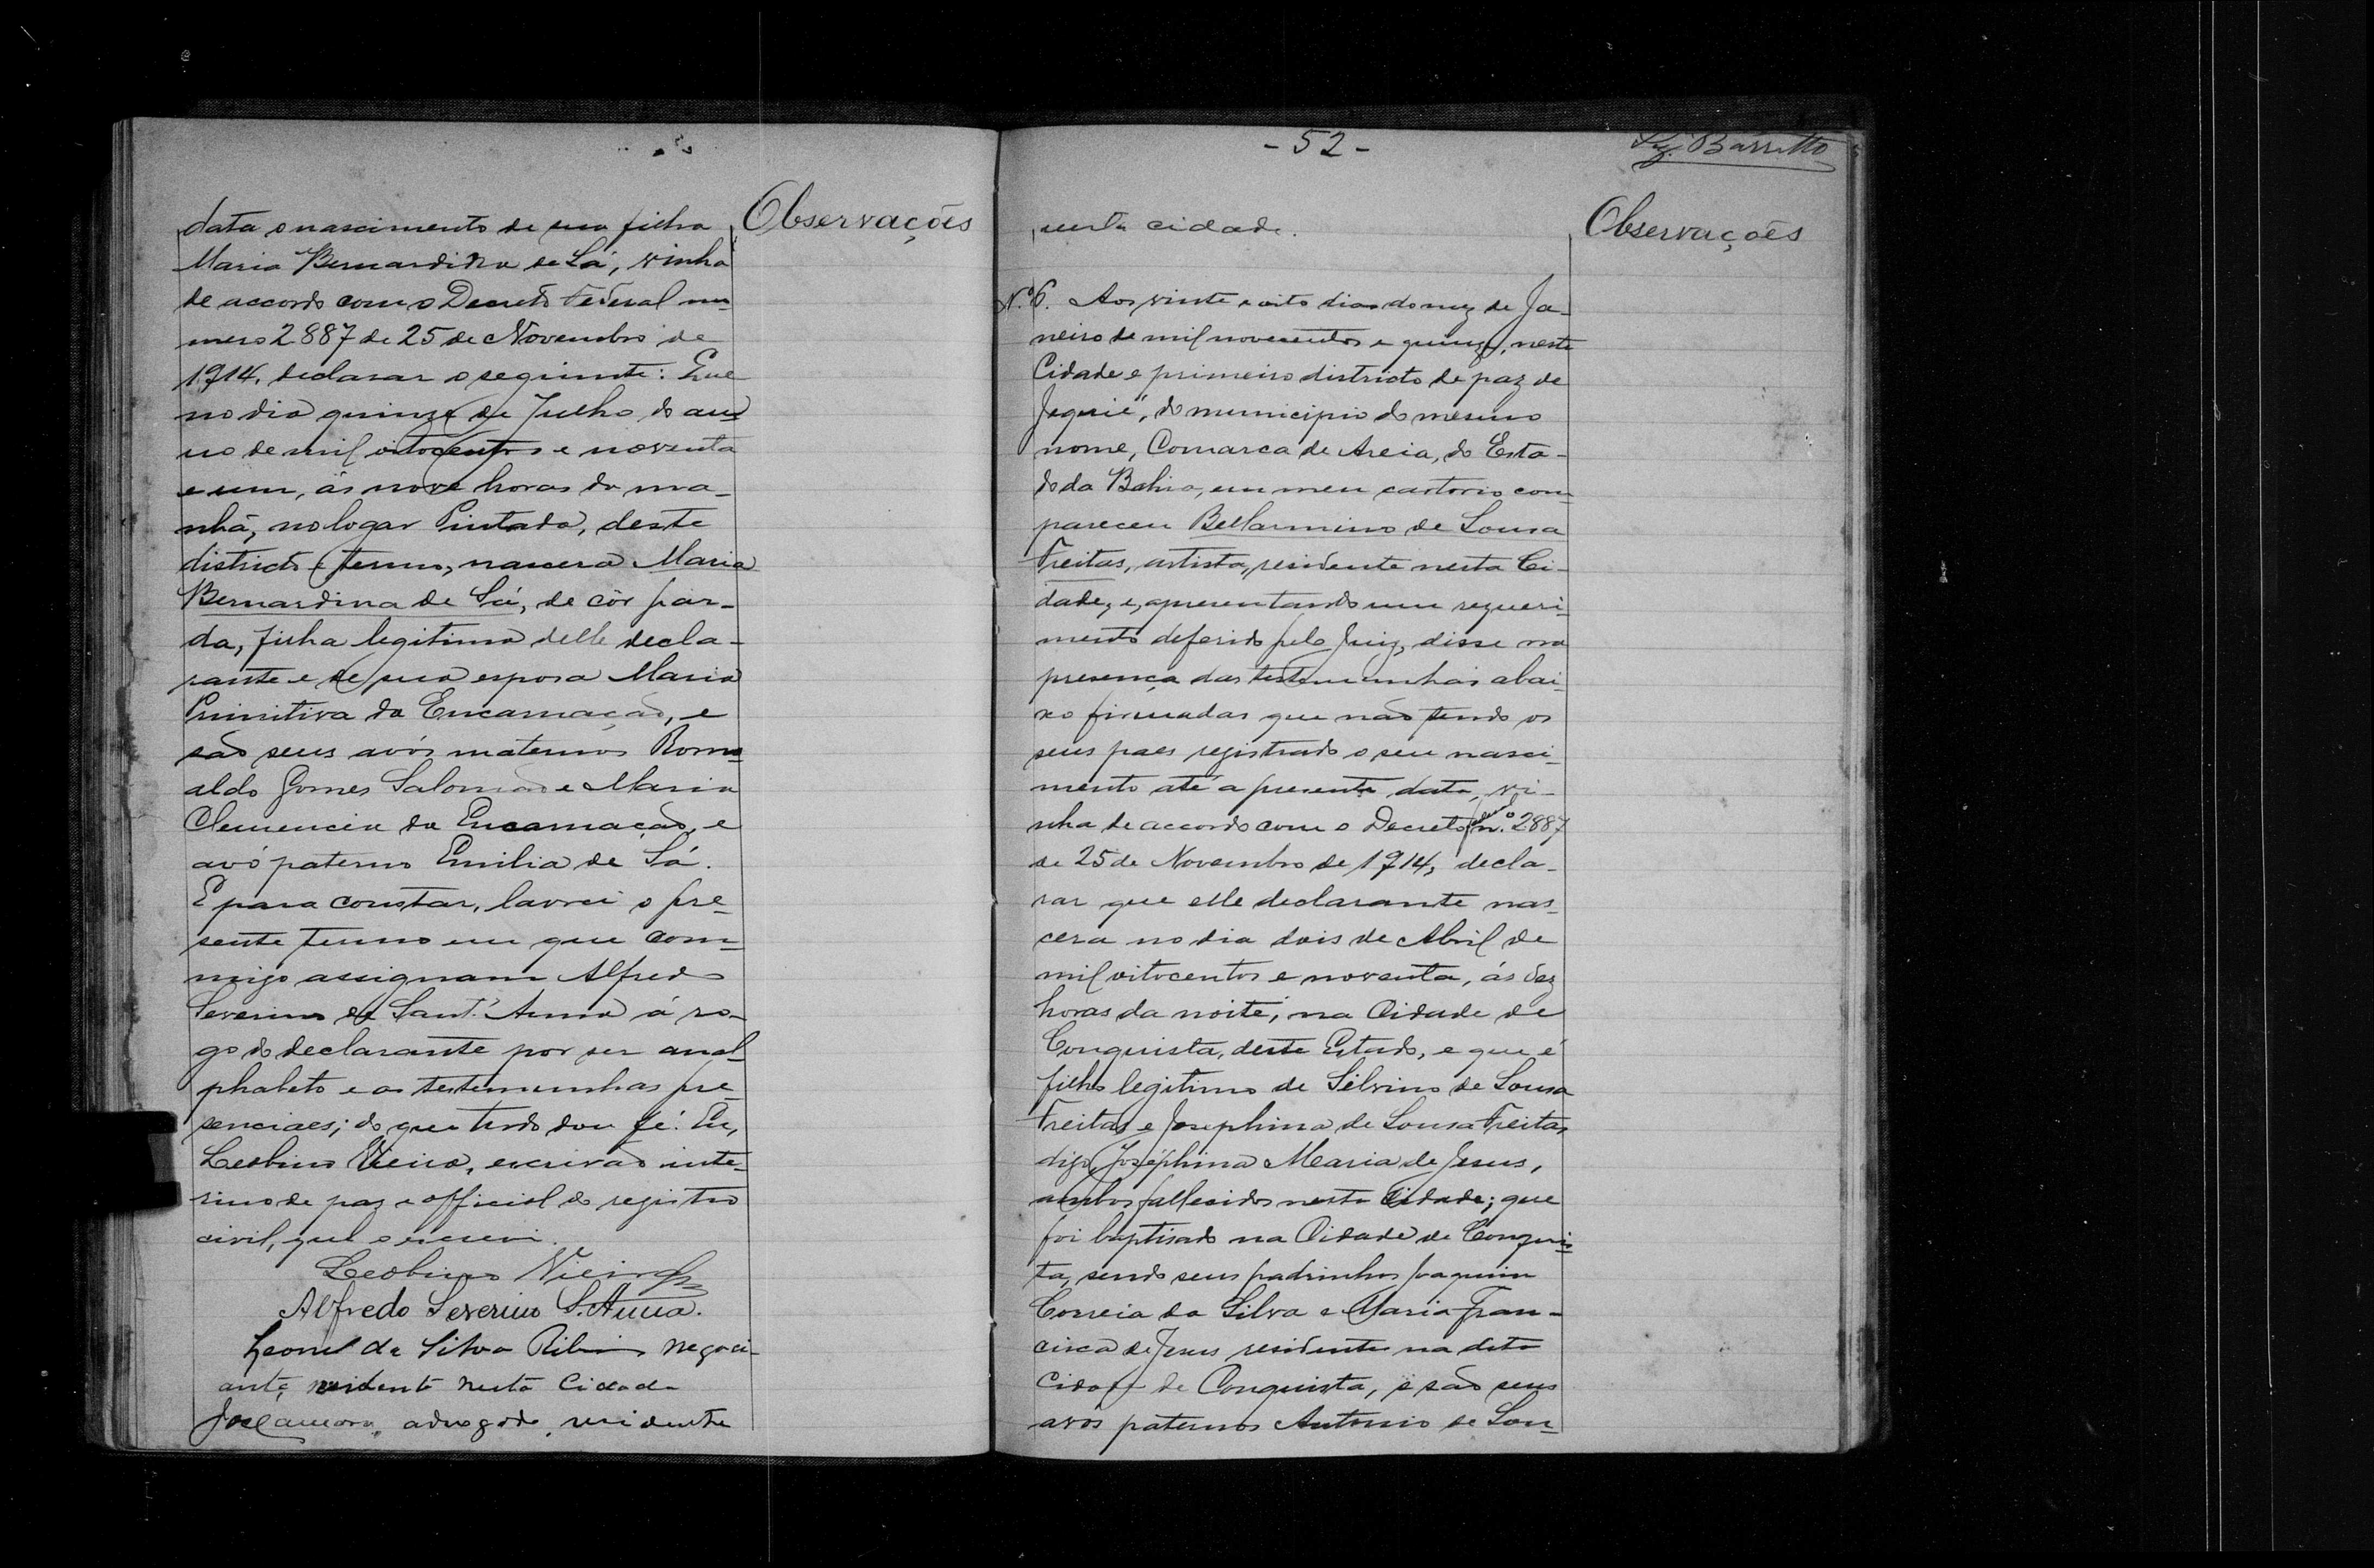 data o nascimento de sua filha
Maria Bernardina de Sá, vinha
de accordo com o Decreto Federal nu-
mero 2887 de 25 de Novembro de
1914, declarar o seguinte: Que
no dia quinze de Julho do an-
no de mil oitocentos e noventa
e um, ás nove horas da ma-
nhã, no logar Pintada, deste
districto e termo, nascera Maria
Bernardina de Sá, de côr par-
da, filha legitima delle decla-
rante e de sua esposa Maria
Primitiva da Encarnação, e
são seus avós maternos Romo-
aldo Gomes Salomão e Maria
Clemencia da Encarnação, e
avó paterno Emilia de Sá.
E para constar, lavrei o pre-
sente termo em que com-
migo assignam Alfredo
Severino de Sant'Anna á ro-
go do declarante por ser anal-
phabeto e as testemunhas pre-
senciaes; do que tudo dou fé. Eu,
Leobino Vieira, escrivão inte-
rino de paz e official do registro
civil, que o escrevi.
Leobino Vieira
Alfredo Severino S. Anna.
Leonel da Silva Ribeiro negoci-
ante, residente nesta Cidade
José advogado, residente
Observações
- 52 -
Barretto
nesta cidade.
Observações
N.º 6. Aos vinte e oito dias do mez de Ja-
neiro de mil novecentos e quinze, neste
Cidade e primeiro districto de paz de
Jequié, do municipio do mesmo
nome, Comarca de Areia, do Esta-
do da Bahia, em meu cartorio com-
pareceu Bellarmino de Sousa
Freitas, artista, residente nesta Ci-
dade, e, apresentando um requeri-
mento deferido pelo Juiz, disse na
presença das testemunhas abai-
xo firmadas que não tendo os
seus paes registrado o seu nasci-
mento até a presente data, vi-
nha de accordo com o Decreto n.º 2887
de 25 de Novembro de 1914, decla-
rar que elle declarante nas-
cera no dia dois de Abril de
mil oitocentos e noventa, ás dez
horas da noite, na Cidade de
Conquista, deste Estado, e que é
filho legitimo de Silvino de Sousa
Freitas e Josephina de Sousa Freitas,
digo, Josephina Maria de Jesus,
ambos fallecidos nesta Cidade; que
foi baptisado na Cidade de Conquis-
ta, sendo seus padrinhos Joaquim
Correia da Silva e Maria Fran-
cisca de Jesus residentes na dita
Cidade de Conquista, e são seus
avós paternos Antonio de Sou-